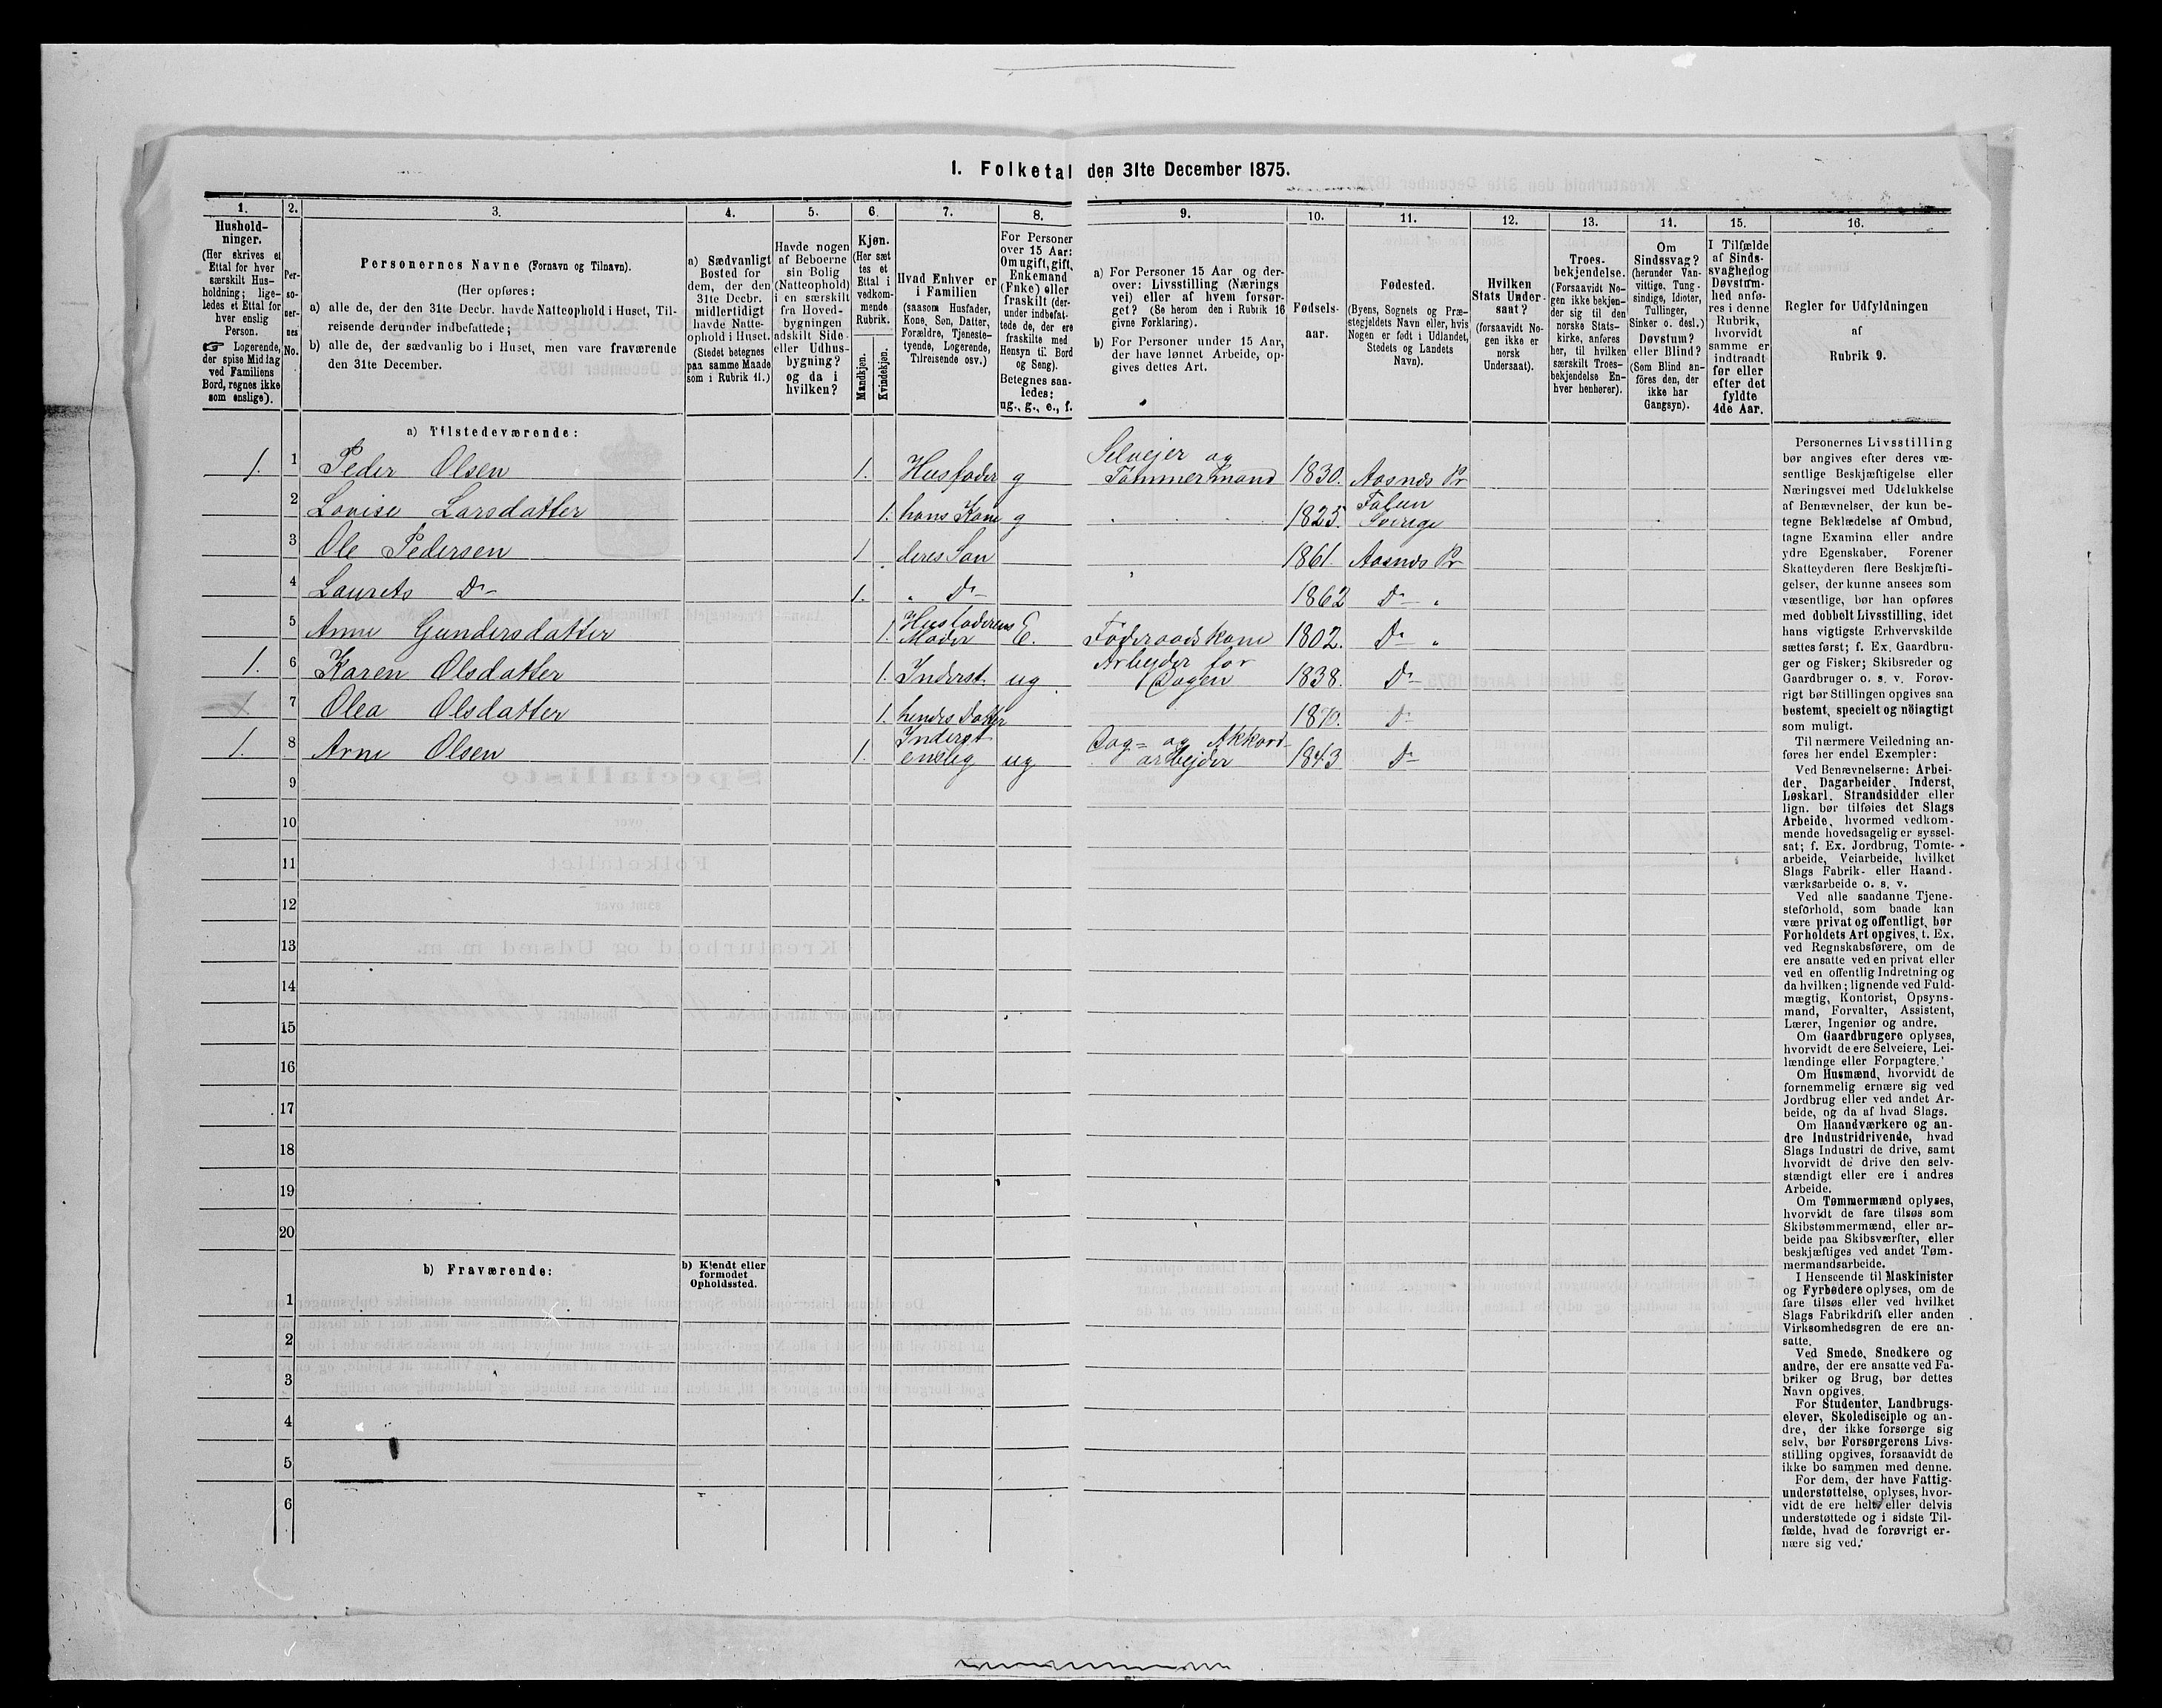 1. Folketal den 31te December 1875.
1.
2.
3.
4.
5.
6.
7.
8.
9.
10.
11.
12.
13.
14.
15.
16.
Hushold-
ninger.
(Her skrives et
Ettal for hver
særskilt Hus-
holdning; lige-
ledes et Ettal for
hver enslig
Person.
☞ Logerende,
der spise Middag
ved Familiens
Bord, regnes ikke
som enslige).
Per-
so-
ner-
nes
No.
Personernes Navne (Fornavn og Tilnavn).
(Her opføres:
a) alle de, der den 31te Decbr. havde Natteophold i Huset, Til-
reisende derunder indbefattede;
b) alle de, der sædvanlig bo i Huset, men vare fraværende
den 31te December.
a) Sædvanligt
Bosted for
dem, der den
31te Decbr.
midlertidigt
havde Natte-
ophold i Huset.
(Stedet betegnes
paa samme Maade
som i Rubrik 11.)
Havde nogen
af Beboerne
sin Bolig
(Natteophold)
i en særskilt
fra Hoved-
bygningen
adskilt Side-
eller Udhus-
bygning?
og da i
hvilken?
Kjøn.
(Her sæt
tes et
Ettal i
vedkom-
mende
Rubrik.
Mandkjøn.
Kvindekjøn.
Hvad Enhver er
i Familien
(saasom Husfader,
Kone, Søn, Datter,
Forældre, Tjeneste-
tyende, Logerende,
Tilreisende osv.)
For Personer
over 15 Aar:
Om ugift, gift,
Enkemand
(Enke) eller
fraskilt (der-
under indbefat-
tede de, der ere
fraskilte med
Hensyn til Bord
og Seng).
Betegnes saa-
ledes:
ug., g., e., f.
a) For Personer 15 Aar og der-
over: Livsstilling (Nærings
vei) eller af hvem forsør-
get? (Se herom den i Rubrik 16
givne Forklaring).
b) For Personer under 15 Aar,
der have lønnet Arbeide, op-
gives dettes Art.
Fødsels-
aar.
Fødested.
(Byens, Sognets og Præ-
stegjeldets Navn eller, hvis
Nogen er født i Udlandet,
Stedets og Landets
Navn).
Hvilken
Stats Under-
saat?
(forsaavidt No-
gen ikke er
norsk
Undersaat).
Troes-
bekjendelse.
(Forsaavidt No-
gen ikke bekjen-
der sig til den
norske Stats-
kirke, anføres
her, til hvilken
særskilt Troes-
bekjendelse En-
hver henhører).
Om
Sindssvag?
(herunder Van-
vittige, Tung-
sindige, Idioter,
Tullinger,
Sinker o. desl.)
Døvstum?
eller Blind?
(Som Blind an-
föres den, der
ikke har
Gangsyn).
I Tilfælde
af Sinds-
svaghed og
Døvstum-
hed anfø-
res i denne
Rubrik,
hvorvidt
samme er
indtraadt
før eller
efter det
fyldte
4de Aar.
Regler for Udfyldningen
af
Rubrik 9.
a) Tilstedeværende:
1. 1 Peder Olsen 1. Husfader g Selvejer og Tømmermand 1830. Aasnæs Pr
2 Lovise Larsdatter 1. hans Kone g 1825. Falun Sverige
3 Ole Pedersen 1 deres Søn 1861. Aasnæs Pr
4 Laurets Do 1. " Do 1862 Do "
5 Anne Gundersdatter 1. Husfaderens Moder E. Føderaadskone 1802. Do "
1. 6 Karen Olsdatter 1. Inderst. ug Arbejder for Dagen 1838. Do
7 Olea Olsdatter 1. hendes Datter 1870. Do
1. 8 Arne Olsen 1. Inderst enslig ug Dag- og Akkord- arbejder 1843 Do
9
10
11
12
13
14
15
16
17
18
19
20
b) Fraværende:
b) Kjendt eller
formodet
Opholdssted.
1
2
3
4
5
6
Personernes Livsstilling
bør angives efter deres væ-
sentlige Beskjæftigelse eller
Næringsvei med Udelukkelse
af Benævnelser, der kun be-
tegne Beklædelse af Ombud,
tagne Examina eller andre
ydre Egenskaber. Forener
Skatteyderen flere Beskjæfti-
gelser, der kunne ansees som
væsentlige, bør han opføres
med dobbelt Livsstilling, idet
hans vigtigste Erhvervskilde
sættes først; f. Ex. Gaardbru-
ger og Fisker; Skibsreder og
Gaardbruger o. s. v. Forøv-
rigt bør Stillingen opgives saa
bestemt, specielt og nöiagtigt
som muligt.
Til nærmere Veiledning an-
føres her endel Exempler:
Ved Benævnelserne: Arbei-
der, Dagarbeider, Inderst,
Løskarl, Strandsidder eller
lign. bør tilføies det Slags
Arbeide, hvormed vedkom-
mende hovedsagelig er syssel-
sat; f. Ex. Jordbrug, Tomte-
arbeide, Veiarbeide, hvilket
Slags Fabrik- eller Haand-
værksarbeide o. s. v.
Ved alle saadanne Tjene-
steforhold, som baade kan
være privat og offentligt, bør
Forholdets Art opgives, t. Ex.
ved Regnskabsførere, om de
ere ansatte ved en privat eller
ved en offentlig Indretning og
da hvilken; lignende ved Fuld-
mægtig, Kontorist, Opsyns-
mand, Forvalter, Assistent,
Lærer, Ingeniør og andre.
Om Gaardbrugere oplyses,
hvorvidt de ere Selveiere, Lei-
lændinge eller Forpagtere.
Om Husmænd, hvorvidt de
fornemmelig ernære sig ved
Jordbrug eller ved andet Ar-
beide, og da af hvad Slags.
Om Haandværkere og an-
dre Industridrivende, hvad
Slags Industri de drive, samt
hvorvidt de drive den selv-
stændigt eller ere i andres
Arbeide.
Om Tømmermænd oplyses,
hvorvidt de fare tilsøs som
Skibstømmermænd, eller ar-
beide paa Skibsværfter, eller
beskjæftiges ved andet Tøm-
mermandsarbeide.
I Henseende til Maskinister
og Fyrbødere oplyses, om de
fare tilsøs eller ved hvilket
Slags Fabrikdrift eller anden
Virksomhedsgren de ere an-
satte.
Ved Smede, Snedkere og
andre, der ere ansatte ved Fa-
briker og Brug, bør dettes
Navn opgives.
For Studenter, Landbrugs-
elever, Skoledisciple og an-
dre, der ikke forsørge sig
selv, bør Forsørgerens Livs-
stilling opgives, forsaavidt de
ikke bo sammen med denne.
For dem, der have Fattig-
understøttelse, oplyses, hvor-
vidt de ere helt eller delvis
understøttede og i sidste Til-
fælde, hvad de forøvrigt er-
nære sig ved.